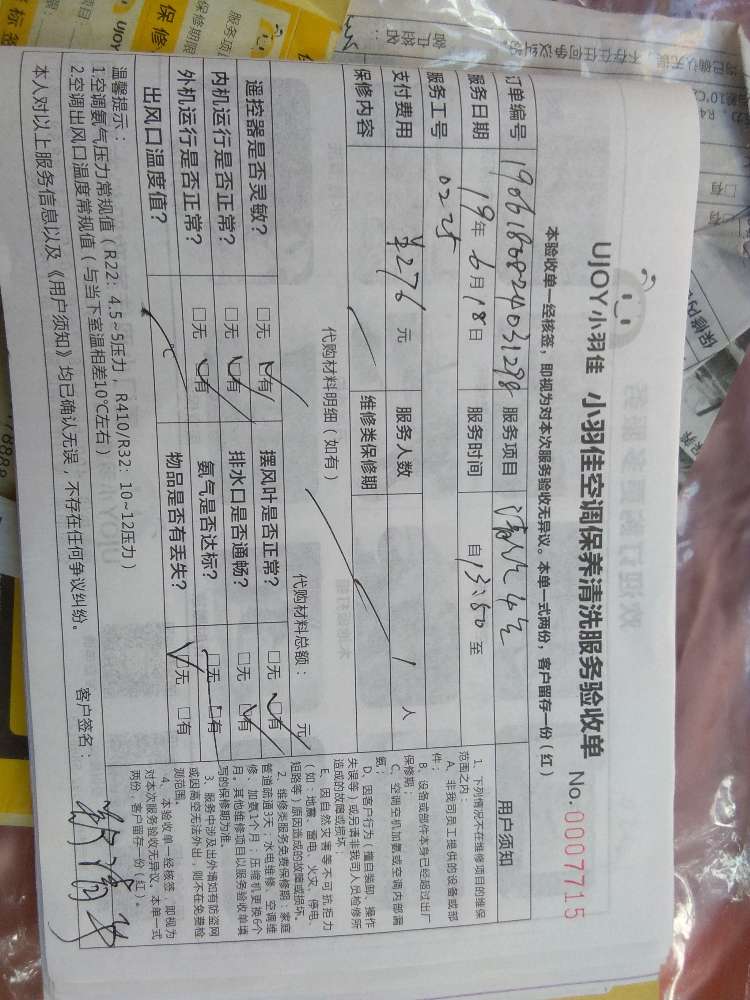 UJOY小羽佳 小羽佳空调保养清洗服务验收单 No.0007715
本验收单一经核签，即视为对本次服务验收无异议。本单一式两份，客户留存一份（红）
订单编号 服务项目
服务日期 19年6月18日 服务时间 自13:50至
服务工号 0225
支付费用 ¥276元 服务人数 1人
保修内容 维修类保修期
代购材料明细（如有） 代购材料总额： 元
遥控器是否灵敏？ □无 □有 摆风叶是否正常？ □无 □有
内机运行是否正常？ □无 □有 排水口是否通畅？ □无 □有
外机运行是否正常？ □无 □有 氨气是否达标？ □无 □有
出风口温度值？ ℃ 物品是否有丢失？ □无 □有
温馨提示：
1.空调氨气压力常规值（R22：4.5~5压力，R410/R32：10~12压力）
2.空调出风口温度常规值（与当下室温相差10℃左右）
本人对以上服务信息以及《用户须知》均已确认无误，不存在任何争议纠纷。 客户签名：
用户须知
1、下列情况不在维修项目的维保
范围之内：
A、非我司员工提供的设备或部
件；
B、设备或部件本身已经超过出厂
保修期；
C、空调空机加氨或空调内部漏
氨；
D、因客户行为（擅自装卸、操作
失误等）或另请非我司人员检修所
造成的故障或损坏；
E、因自然灾害等不可抗拒力
（如：地震、雷电、火灾、停电、
短路等）原因造成的故障或损坏。
2、维修类服务免费保修期：家庭
管道疏通3天；水电维修、空调维
修、加氨1个月；压缩机更换6个
月。其他维修项目以服务验收单填
写的保修期为准。
3、服务中涉及出外墙如有防盗网
或因高空无法外出，则不在免费检
测范围。
4、本验收单一经核签，即视为
对本次服务验收无异议。本单一式
两份，客户留存一份（红）。